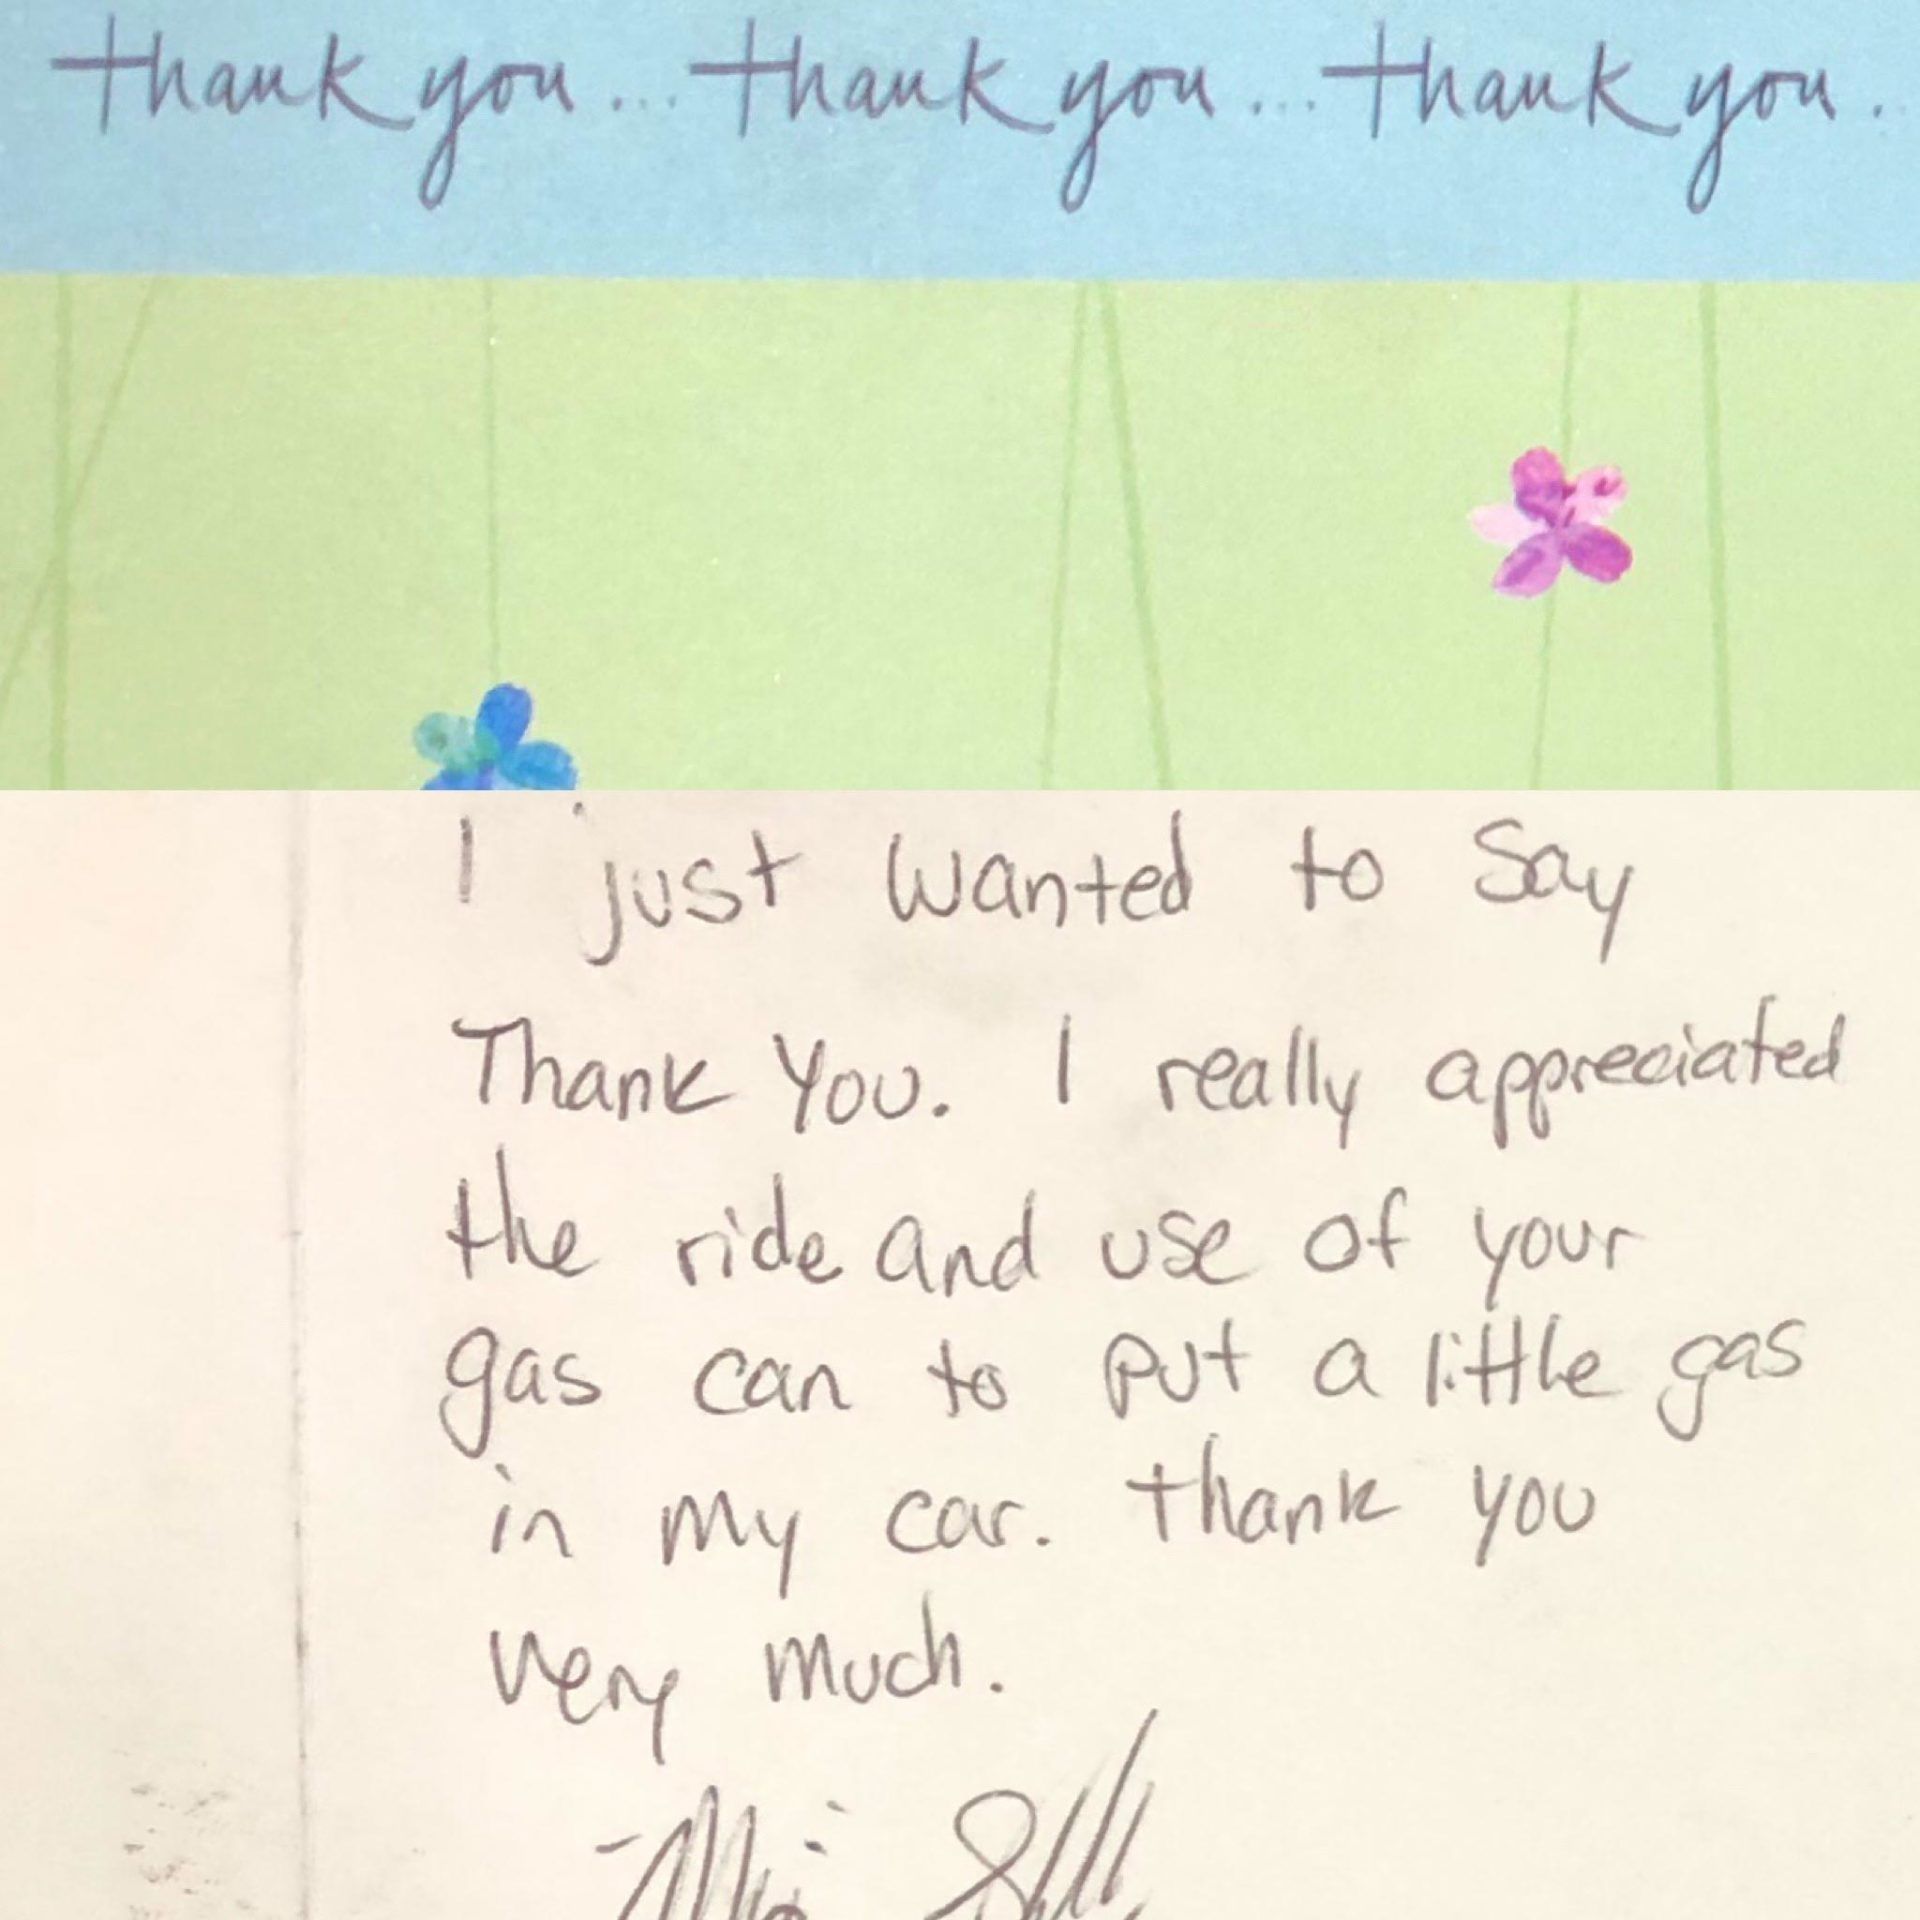 thank you... thank you... thank you.
I just wanted to say
Thank You. I really appreciated
the ride and use of your
gas can to put a little gas
in my car. thank you
very much.